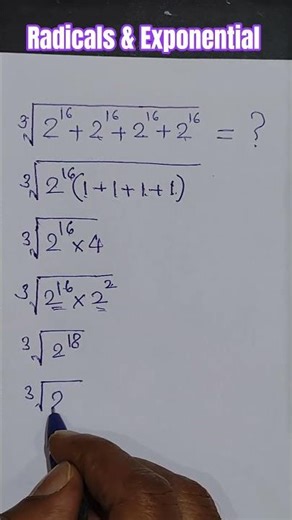 Radicals & Exponential
∛(2^16 + 2^16 + 2^16 + 2^16) = ?
∛(2^16(1+1+1+1))
∛(2^16 × 4)
∛(2^16 × 2^2)
∛(2^18)
∛(2